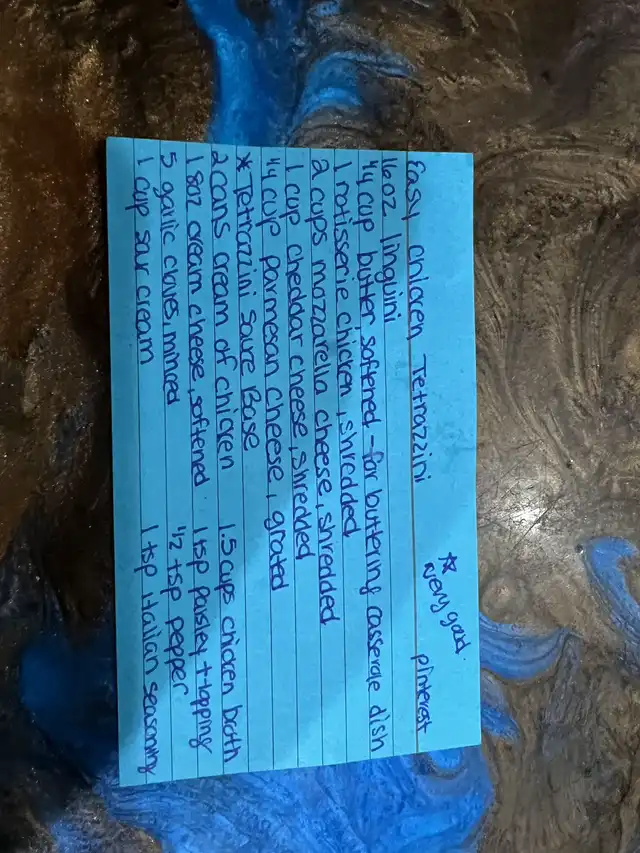 ☆ very good.
Easy Chicken Tetrazzini pinterest
16 oz linguini
1/4 cup butter, softened - for buttering casserole dish
1 rotisserie chicken, shredded
2 cups mozzarella cheese, shredded
1 cup cheddar cheese, shredded
1/4 cup parmesan cheese, grated
* Tetrazzini Sauce Base
2 cans cream of chicken 1.5 cups chicken broth
1 8oz cream cheese, softened 1 tsp parsley + topping
5 garlic cloves, minced 1/2 tsp pepper
1 cup sour cream 1 tsp italian seasoning